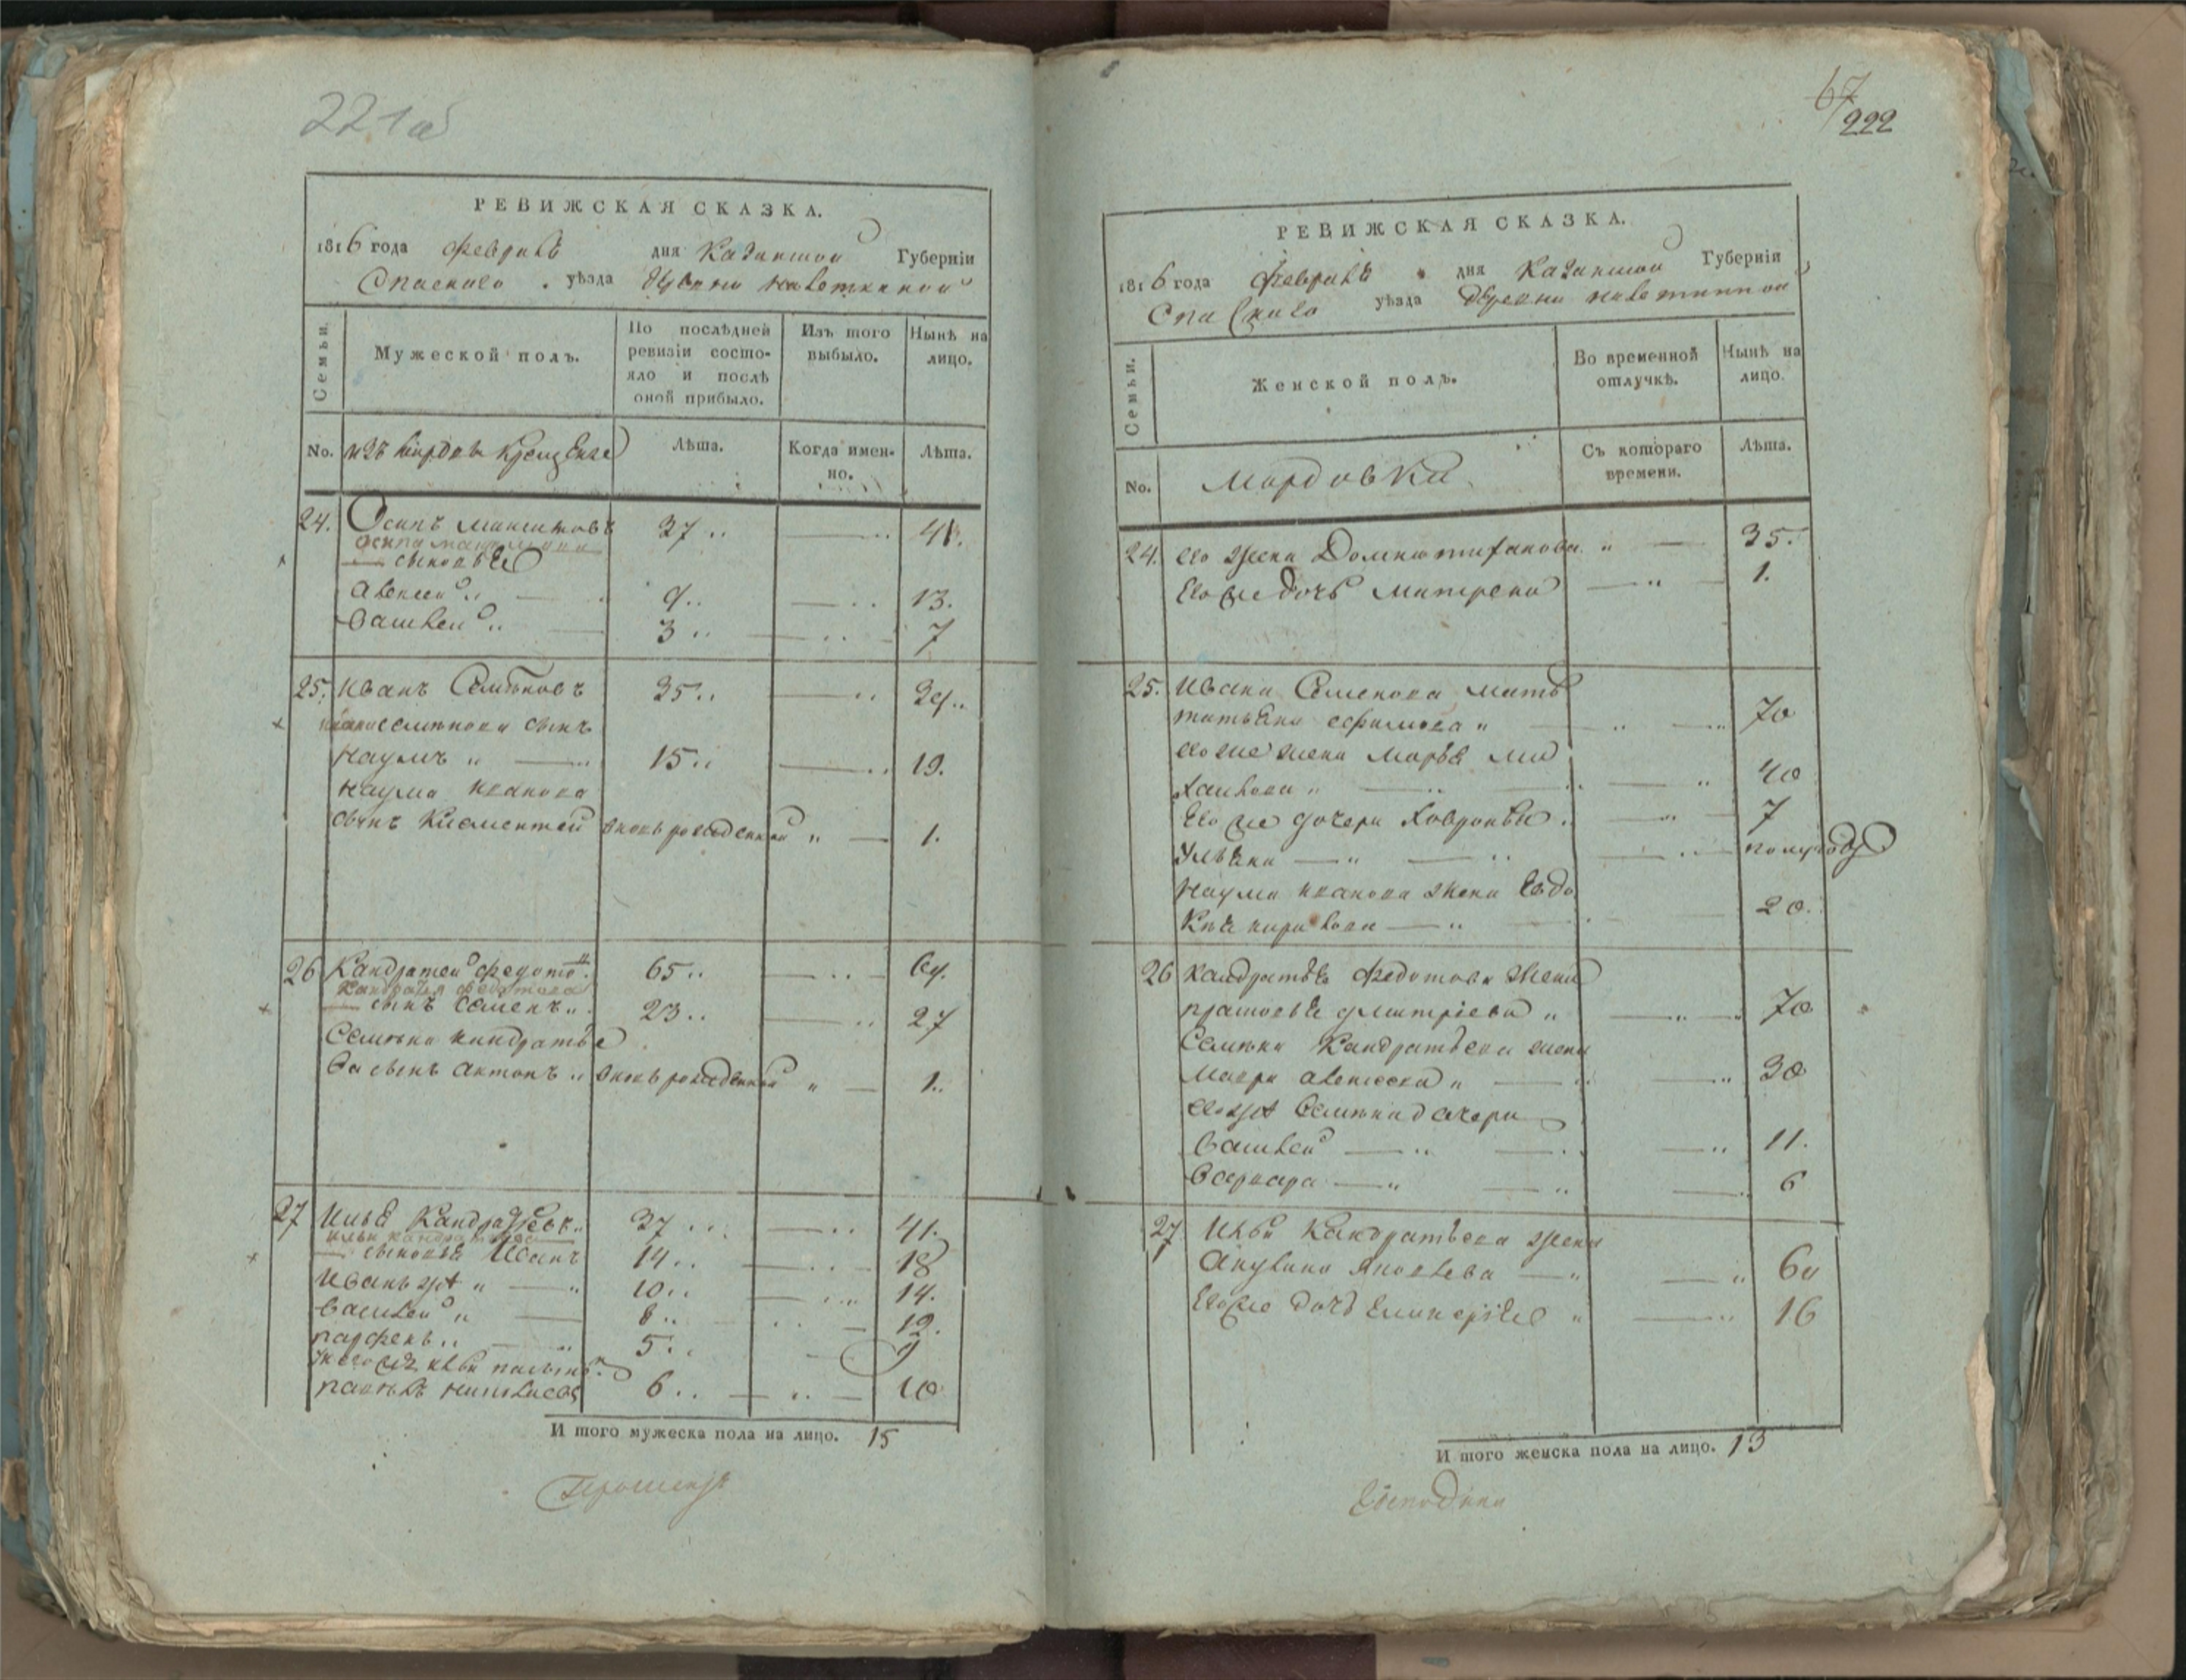 221об
РЕВИЖСКАЯ СКАЗКА.
1816 года февраля дня Казанской Губерніи
Спаскаго уѣзда
Семьи.
Мужеской полъ.
По послѣдней ревизіи состояло и послѣ оной прибыло.
Изъ того выбыло.
Нынѣ на лицо.
No.
изъ мордвы крещеные
Лѣта.
Когда именно.
Лѣта.
24. Осипъ 37 41.
сыновья
Алексей 9 13.
Василей 3 7
25. Иванъ Семеновъ 35 39
Ивана Семенова сынъ
Наумъ 15 19.
Наума Иванова
сынъ Климентей вновь рожденной 1.
26 Кандратей Федото 65 69.
Кандратья Федотова
сынъ Семенъ 23 27
Семена Кандратье
ва сынъ Антонъ вновь рожденной 1.
27 Илья Кандратьевъ 37 41.
Ильи Кандратьева
сыновья Иванъ 14 18
Иванъ же 10 14.
Василей 8 12.
Парфенъ 5 9
6 10
И того мужеска пола на лицо. 15
67
222
РЕВИЖСКАЯ СКАЗКА.
1816 года февраля дня Казанской Губерніи
Спаскаго уѣзда деревни
Семьи.
Женской полъ.
Во временной отлучкѣ.
Нынѣ на лицо.
No.
Мордовки
Съ котораго времени.
Лѣта.
24. его жена Домна 35.
Его же дочь Матрена 1.
25. Ивана Семенова мать
татьяна ефимова 70
его же жена Марья Ми
хайлова 40
Его же дочери Ховронья 7
Ульяна полугоду
Наума Иванова жена Евдо
кия 20.
26 Кандратья Федотова жена
дмитріева 70
Семена Кандратьева жена
Мавра алексеева 30
его же Семена дачери
11.
Варвара 6
27 Ильи Кандратьева жена
Акулина Яковлева 60
Его же дочь 16
И того женска пола на лицо. 13